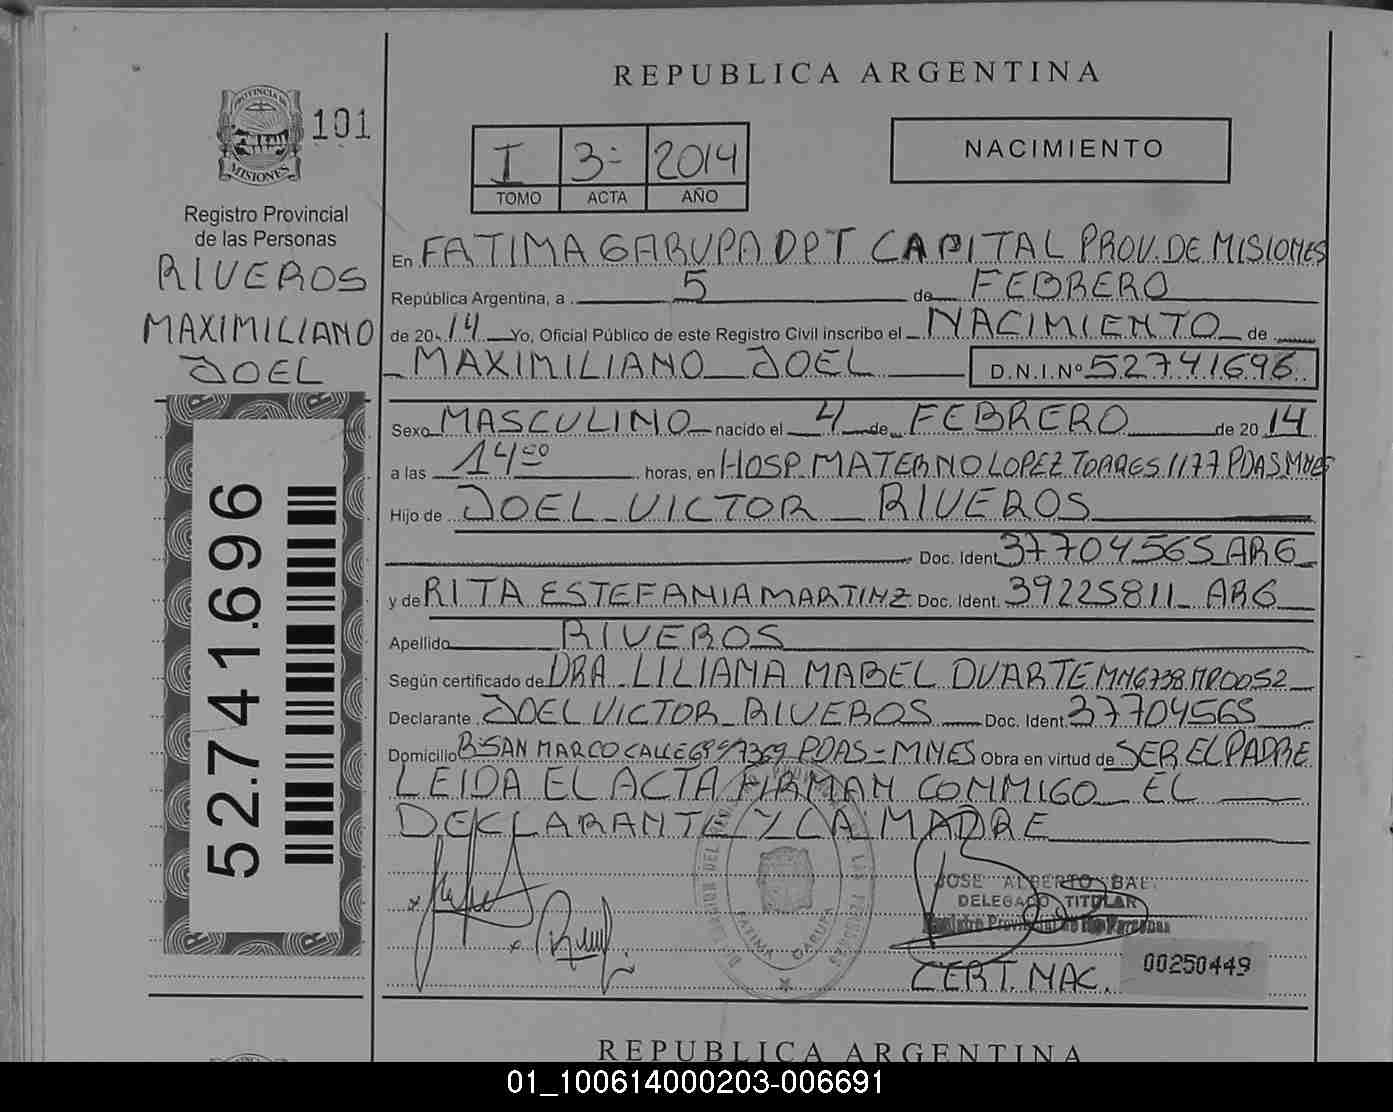 REPUBLICA ARGENTINA
PROVINCIA DE
MISIONES
101
Registro Provincial
de las Personas
RIVEROS
MAXIMILIANO
JOEL
52.741.696
I 3- 2014
TOMO ACTA AÑO
NACIMIENTO
En FATIMA GARUPA DPT CAPITAL PROV. DE MISIONES
República Argentina, a 5 de FEBRERO
de 20 14 Yo, Oficial Público de este Registro Civil inscribo el NACIMIENTO de
MAXIMILIANO JOEL D.N.I.Nº 52741696
Sexo MASCULINO nacido el 4 de FEBRERO de 20 14
a las 14 00 horas, en HOSP. MATERNO LOPEZ TORRES 1177 PDAS MNES
Hijo de JOEL VICTOR RIVEROS
Doc. Ident. 37704565 ARG
y de RITA ESTEFANIA MARTINZ Doc. Ident. 39225811 ARG
Apellido RIVEROS
Según certificado de DRA LILIANA MABEL DUARTE MN6738 MP0052
Declarante JOEL VICTOR RIVEROS Doc. Ident. 37704565
Domicilio Bº SAN MARCO CALLE 69 7369 PDAS - MNES Obra en virtud de SER EL PADRE
LEIDA EL ACTA FIRMAN CONMIGO EL
DECLARANTE Y LA MADRE
JOSE ALBERTO BAE
DELEGADO TITULAR
Registro Provincial de las Personas
FATIMA GARUPA
CERT. NAC. 00250449
REPUBLICA ARGENTINA
01_100614000203-006691